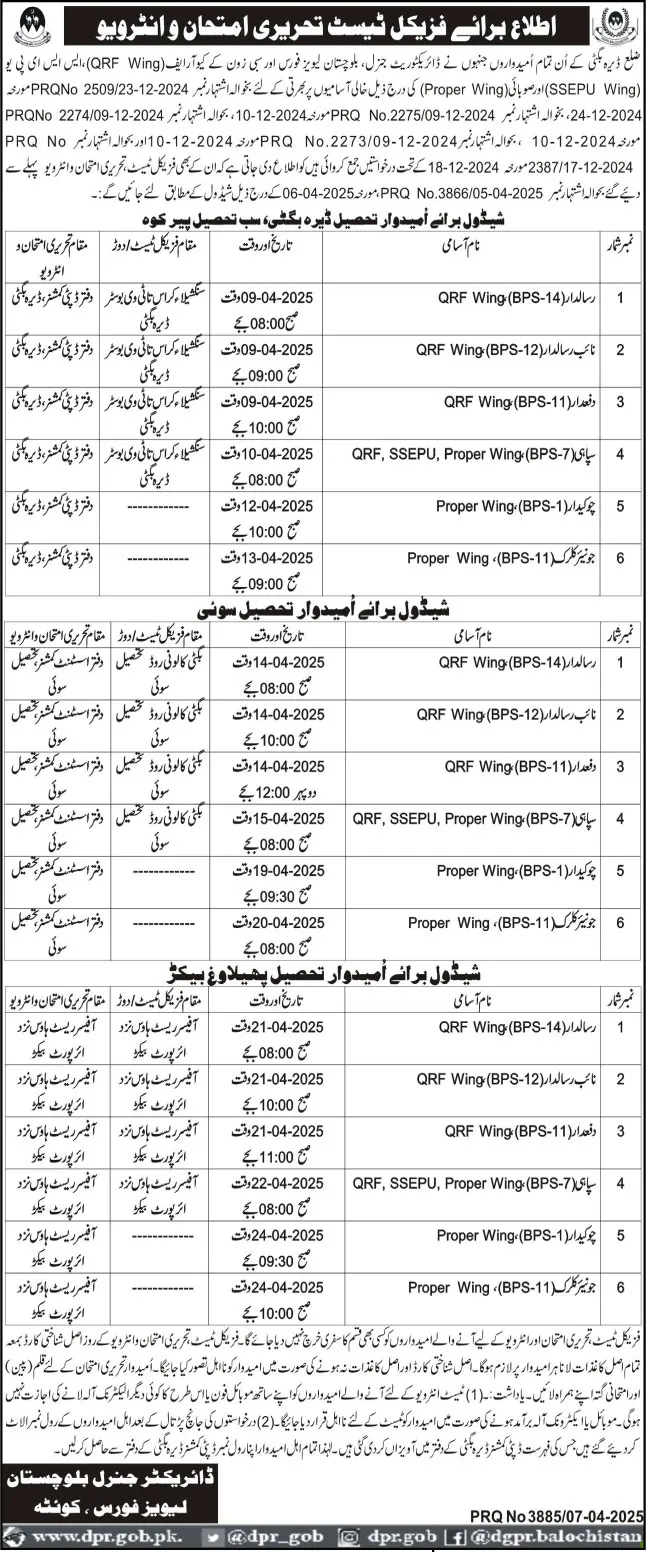 اطلاع برائے فزیکل ٹیسٹ تحریری امتحان و انٹرویو
ضلع ڈیرہ بگٹی کے اُن تمام اُمیدواروں جنہوں نے ڈائریکٹوریٹ جنرل، بلوچستان لیویز فورس اور سبی زون کے کیو آر ایف (QRF Wing)، ایس ایس ای پی یو
(SSEPU Wing) اور صوبائی (Proper Wing) کی درج ذیل خالی آسامیوں پر بھرتی کے لئے بحوالہ اشتہار نمبر PRQNo 2509/23-12-2024 مورخہ
24-12-2024، بحوالہ اشتہار نمبر PRQ No.2275/09-12-2024 مورخہ 10-12-2024، بحوالہ اشتہار نمبر PRQNo 2274/09-12-2024
مورخہ 10-12-2024، بحوالہ اشتہار نمبر PRQ No.2273/09-12-2024 مورخہ 10-12-2024 اور بحوالہ اشتہار نمبر PRQ No
2387/17-12-2024 مورخہ 18-12-2024 کے تحت درخواستیں جمع کروائی ہیں کو اطلاع دی جاتی ہے کہ ان کے بھی فزیکل ٹیسٹ، تحریری امتحان و انٹرویو پہلے سے
دیئے گئے بحوالہ اشتہار نمبر PRQ No.3866/05-04-2025، مورخہ 06-04-2025 کے درج ذیل شیڈول کے مطابق لئے جائیں گے:۔
شیڈول برائے اُمیدوار تحصیل ڈیرہ بگٹی، سب تحصیل پیر کوہ
نمبر شمار نام آسامی تاریخ اور وقت مقام فزیکل ٹیسٹ / دوڑ مقام تحریری امتحان و
انٹرویو
1 رسالدار (BPS-14)، QRF Wing 09-04-2025 وقت سنگسیلاء کراس تا ٹی وی بوسٹر دفتر ڈپٹی کمشنر، ڈیرہ بگٹی
صبح 08:00 بجے ڈیرہ بگٹی
2 نائب رسالدار (BPS-12)، QRF Wing 09-04-2025 وقت سنگسیلاء کراس تا ٹی وی بوسٹر دفتر ڈپٹی کمشنر، ڈیرہ بگٹی
صبح 09:00 بجے ڈیرہ بگٹی
3 دفعدار (BPS-11)، QRF Wing 09-04-2025 وقت سنگسیلاء کراس تا ٹی وی بوسٹر دفتر ڈپٹی کمشنر، ڈیرہ بگٹی
صبح 10:00 بجے ڈیرہ بگٹی
4 سپاہی (BPS-7)، QRF, SSEPU, Proper Wing 10-04-2025 وقت سنگسیلاء کراس تا ٹی وی بوسٹر دفتر ڈپٹی کمشنر، ڈیرہ بگٹی
صبح 08:00 بجے ڈیرہ بگٹی
5 چوکیدار (BPS-1)، Proper Wing 12-04-2025 وقت ------------ دفتر ڈپٹی کمشنر، ڈیرہ بگٹی
صبح 10:00 بجے
6 جونیئر کلرک (BPS-11)، Proper Wing 13-04-2025 وقت ------------ دفتر ڈپٹی کمشنر، ڈیرہ بگٹی
صبح 09:00 بجے
شیڈول برائے اُمیدوار تحصیل سوئی
نمبر شمار نام آسامی تاریخ اور وقت مقام فزیکل ٹیسٹ / دوڑ مقام تحریری امتحان و انٹرویو
1 رسالدار (BPS-14)، QRF Wing 14-04-2025 وقت بگٹی کالونی روڈ تحصیل دفتر اسسٹنٹ کمشنر، تحصیل
صبح 08:00 بجے سوئی سوئی
2 نائب رسالدار (BPS-12)، QRF Wing 14-04-2025 وقت بگٹی کالونی روڈ تحصیل دفتر اسسٹنٹ کمشنر، تحصیل
صبح 10:00 بجے سوئی سوئی
3 دفعدار (BPS-11)، QRF Wing 14-04-2025 وقت بگٹی کالونی روڈ تحصیل دفتر اسسٹنٹ کمشنر، تحصیل
دوپہر 12:00 بجے سوئی سوئی
4 سپاہی (BPS-7)، QRF, SSEPU, Proper Wing 15-04-2025 وقت بگٹی کالونی روڈ تحصیل دفتر اسسٹنٹ کمشنر، تحصیل
صبح 08:00 بجے سوئی سوئی
5 چوکیدار (BPS-1)، Proper Wing 19-04-2025 وقت ------------ دفتر اسسٹنٹ کمشنر، تحصیل
صبح 09:30 بجے سوئی
6 جونیئر کلرک (BPS-11)، Proper Wing 20-04-2025 وقت ------------ دفتر اسسٹنٹ کمشنر، تحصیل
صبح 08:00 بجے سوئی
شیڈول برائے اُمیدوار تحصیل پھیلاوغ بیکڑ
نمبر شمار نام آسامی تاریخ اور وقت مقام فزیکل ٹیسٹ / دوڑ مقام تحریری امتحان و انٹرویو
1 رسالدار (BPS-14)، QRF Wing 21-04-2025 وقت آفیسر ریسٹ ہاؤس نزد آفیسر ریسٹ ہاؤس نزد
صبح 08:00 بجے ائرپورٹ بیکڑ ائرپورٹ بیکڑ
2 نائب رسالدار (BPS-12)، QRF Wing 21-04-2025 وقت آفیسر ریسٹ ہاؤس نزد آفیسر ریسٹ ہاؤس نزد
صبح 10:00 بجے ائرپورٹ بیکڑ ائرپورٹ بیکڑ
3 دفعدار (BPS-11)، QRF Wing 21-04-2025 وقت آفیسر ریسٹ ہاؤس نزد آفیسر ریسٹ ہاؤس نزد
صبح 11:00 بجے ائرپورٹ بیکڑ ائرپورٹ بیکڑ
4 سپاہی (BPS-7)، QRF, SSEPU, Proper Wing 22-04-2025 وقت آفیسر ریسٹ ہاؤس نزد آفیسر ریسٹ ہاؤس نزد
صبح 08:00 بجے ائرپورٹ بیکڑ ائرپورٹ بیکڑ
5 چوکیدار (BPS-1)، Proper Wing 24-04-2025 وقت ------------ آفیسر ریسٹ ہاؤس نزد
صبح 09:30 بجے ائرپورٹ بیکڑ
6 جونیئر کلرک (BPS-11)، Proper Wing 24-04-2025 وقت ------------ آفیسر ریسٹ ہاؤس نزد
صبح 10:00 بجے ائرپورٹ بیکڑ
فزیکل ٹیسٹ، تحریری امتحان اور انٹرویو کے لیے آنے والے امیدواروں کو کسی بھی قسم کا سفری خرچ نہیں دیا جائے گا۔ فزیکل ٹیسٹ، تحریری امتحان و انٹرویو کے روز اصل شناختی کارڈ بمعہ
تمام اصل کاغذات لانا ہر امیدوار پر لازم ہوگا۔ اصل شناختی کارڈ اور اصل کاغذات نہ ہونے کی صورت میں امیدوار کو نا اہل تصور کیا جائیگا۔ اُمیدوار تحریری امتحان کے لئے قلم (پین)
اور امتحانی گتہ اپنے ہمراہ لائیں۔ یاداشت:۔ (1) ٹیسٹ انٹرویو کے لئے آنے والے امیدواروں کو اپنے ساتھ موبائل فون یا اس طرح کا کوئی دیگر الیکٹرنک آلہ لانے کی اجازت نہیں
ہوگی۔ موبائل یا الیکٹرونک آلہ برآمد ہونے کی صورت میں امیدوار کو ٹیسٹ کے لئے نا اہل قرار دیا جائیگا۔ (2) درخواستوں کی جانچ پڑتال کے بعد اہل امیدواروں کے رول نمبر الاٹ
کر دیئے گئے ہیں جس کی فہرست ڈپٹی کمشنر ڈیرہ بگٹی کے دفتر میں آویزاں کر دی گئی ہیں۔ لہٰذا تمام اہل امیدوار اپنا رول نمبر ڈپٹی کمشنر ڈیرہ بگٹی کے دفتر سے حاصل کر لیں۔
ڈائریکٹر جنرل بلوچستان
لیویز فورس، کوئٹہ
PRQ No 3885/07-04-2025
www.dpr.gob.pk. @dpr_gob dpr.gob @dgpr.balochistan